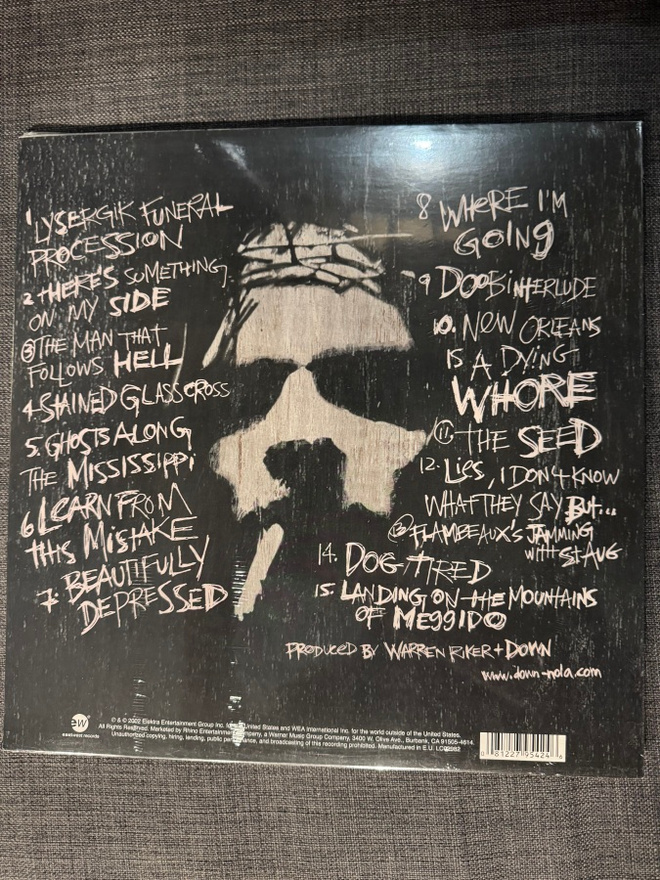 1 LYSERGIK FUNERAL
PROCESSION
2 THERE'S SOMETHING
ON MY SIDE
3 THE MAN THAT
FOLLOWS HELL
4. STAINED GLASS CROSS
5. GHOSTS ALONG
THE MISSISSIPPi
6 LEARN FROM
THIS MISTAKE
7. BEAUTIFULLY
DEPRESSED
8 WHERE I'M
GOING
9 DOOB iNTERLUDE
10. NEW ORLEANS
IS A DYING
WHORE
11. THE SEED
12. LIES, I DON'T KNOW
WHAT THEY SAY BUT...
13 FLAMBEAUX'S JAMMING
with St. AUG
14. DOG TIRED
15. LANDING ON THE MOUNTAINS
OF MEGGIDO
PRODUCED BY WARREN RIKER + DOWN
www.down-nola.com
ew
elektra records
℗ & © 2002 Elektra Entertainment Group Inc. for the United States and WEA International Inc. for the world outside of the United States.
All Rights Reserved. Marketed by Rhino Entertainment Company, a Warner Music Group Company, 3400 W. Olive Ave., Burbank, CA 91505-4614.
Unauthorized copying, hiring, lending, public performance, and broadcasting of this recording prohibited. Manufactured in E.U. LC02982
0 81227 95424 6